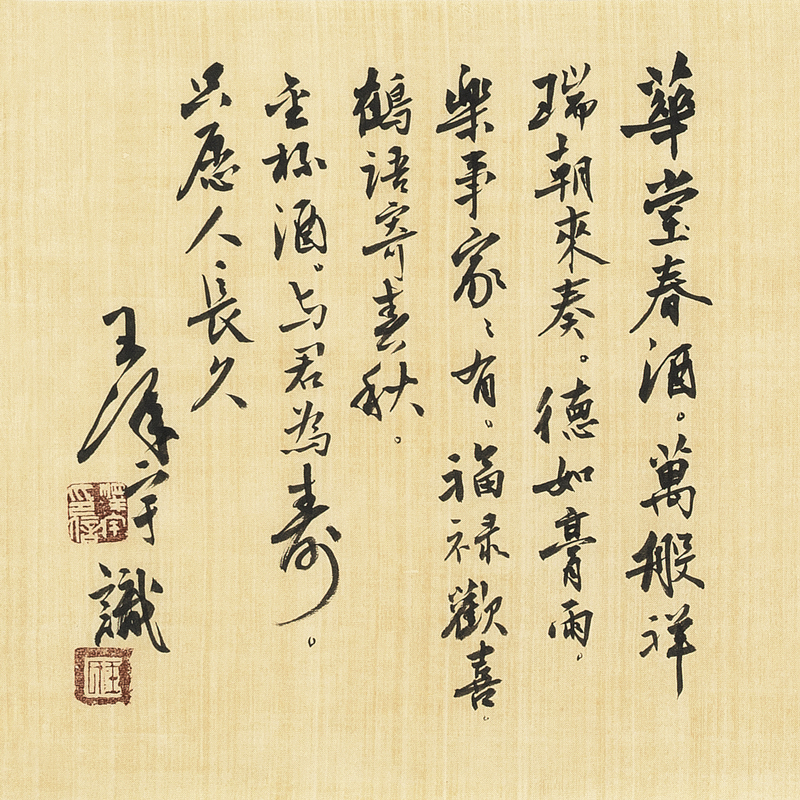 華堂春酒。萬般祥
瑞朝來奏。德如膏雨。
樂事家〻有。福禄歡喜。
鶴語寄春秋。
金杯酒。与君為壽。
只愿人長久
王泽宇識